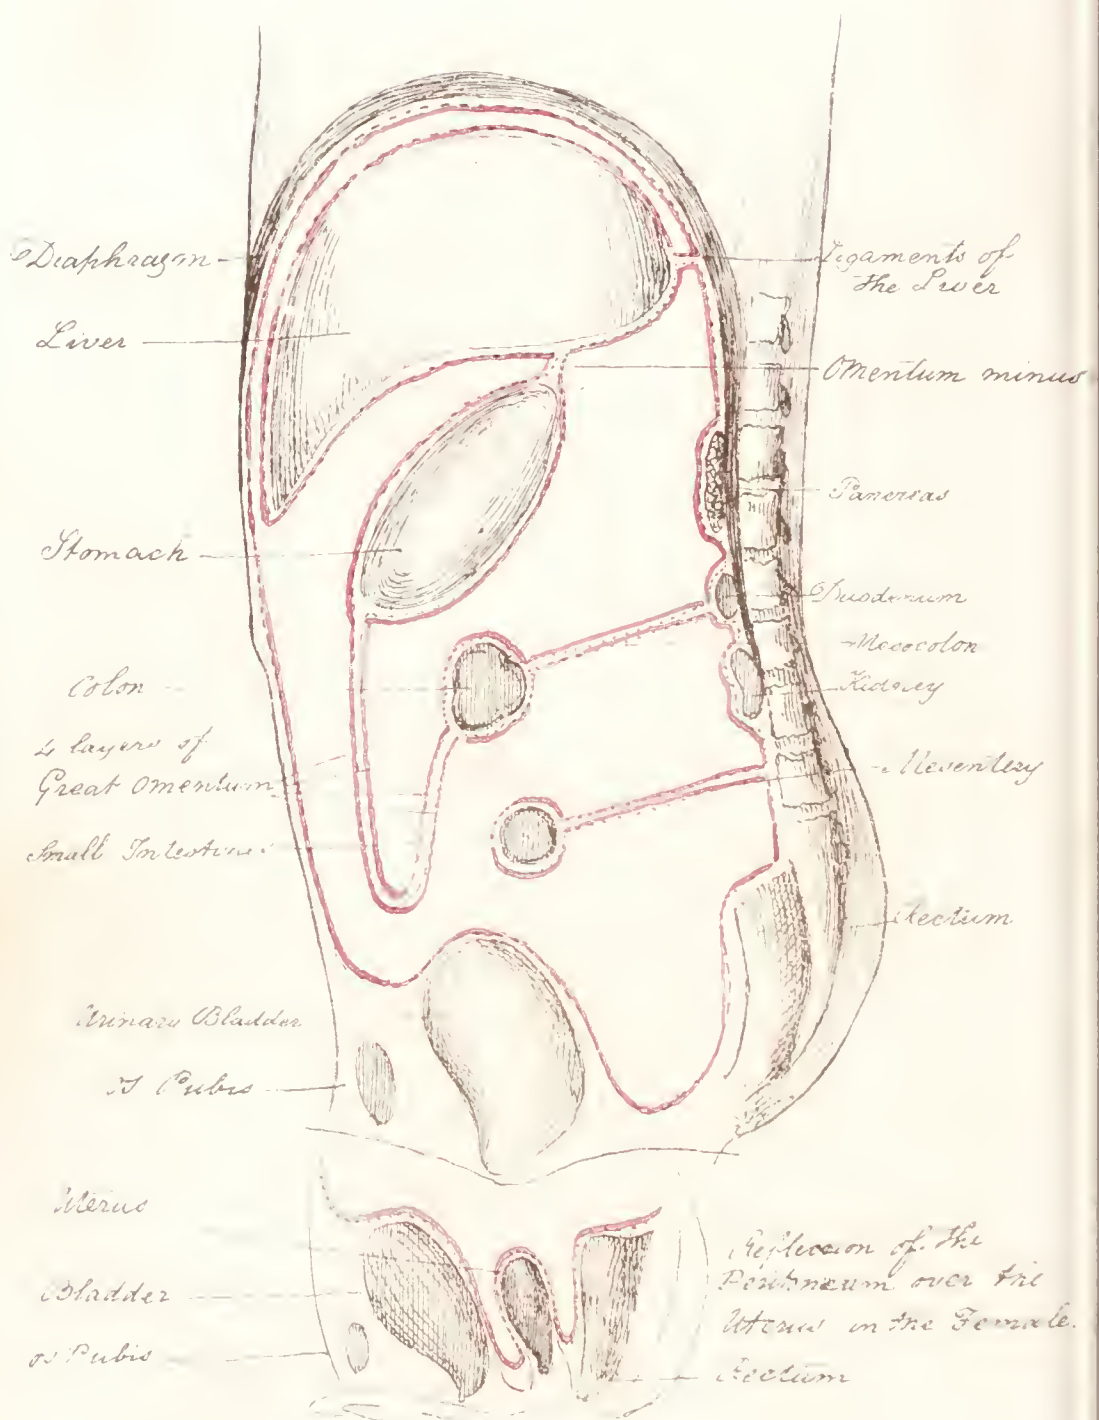 Diaphragm
Liver
Stomach
Colon
4 layers of
Great Omentum
Small Intestines
Urinary Bladder
Pubis
Ligaments of
the Liver
Omentum minus
Pancreas
Duodenum
Mesocolon
Kidney
Mesentery
Rectum
Uterus
Bladder
os Pubis
Reflection of the
Peritoneum over the
Uterus in the Female.
Rectum